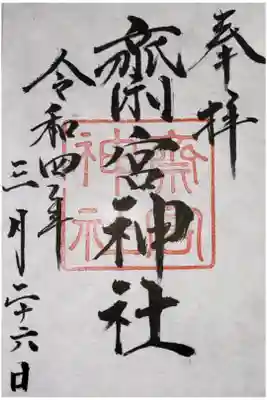 奉拝
齋宮神社
令和四年
三月二十六日